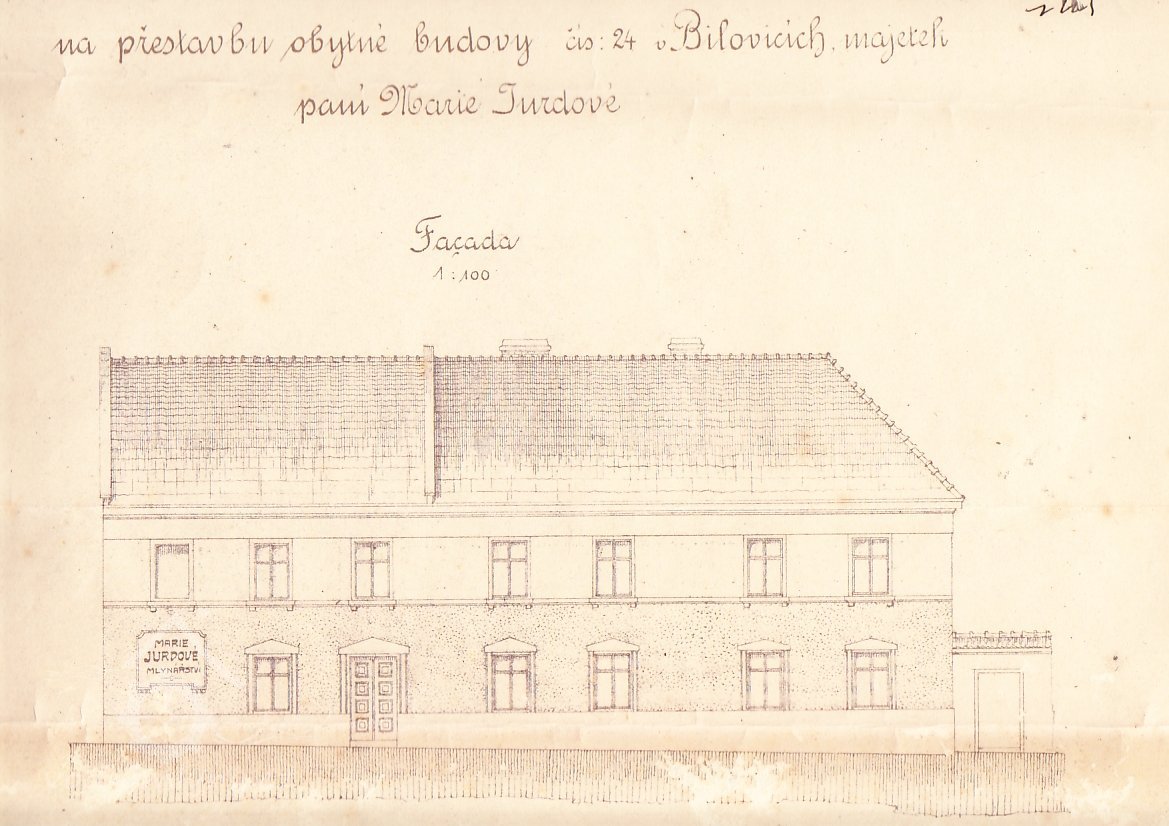 na přestavbu obytné budovy čís: 24 v Bílovicích, majetek
paní Marie Jurdové
Façada
1 : 100
MARIE
JURDOVÉ
MLYNÁŘSTVÍ